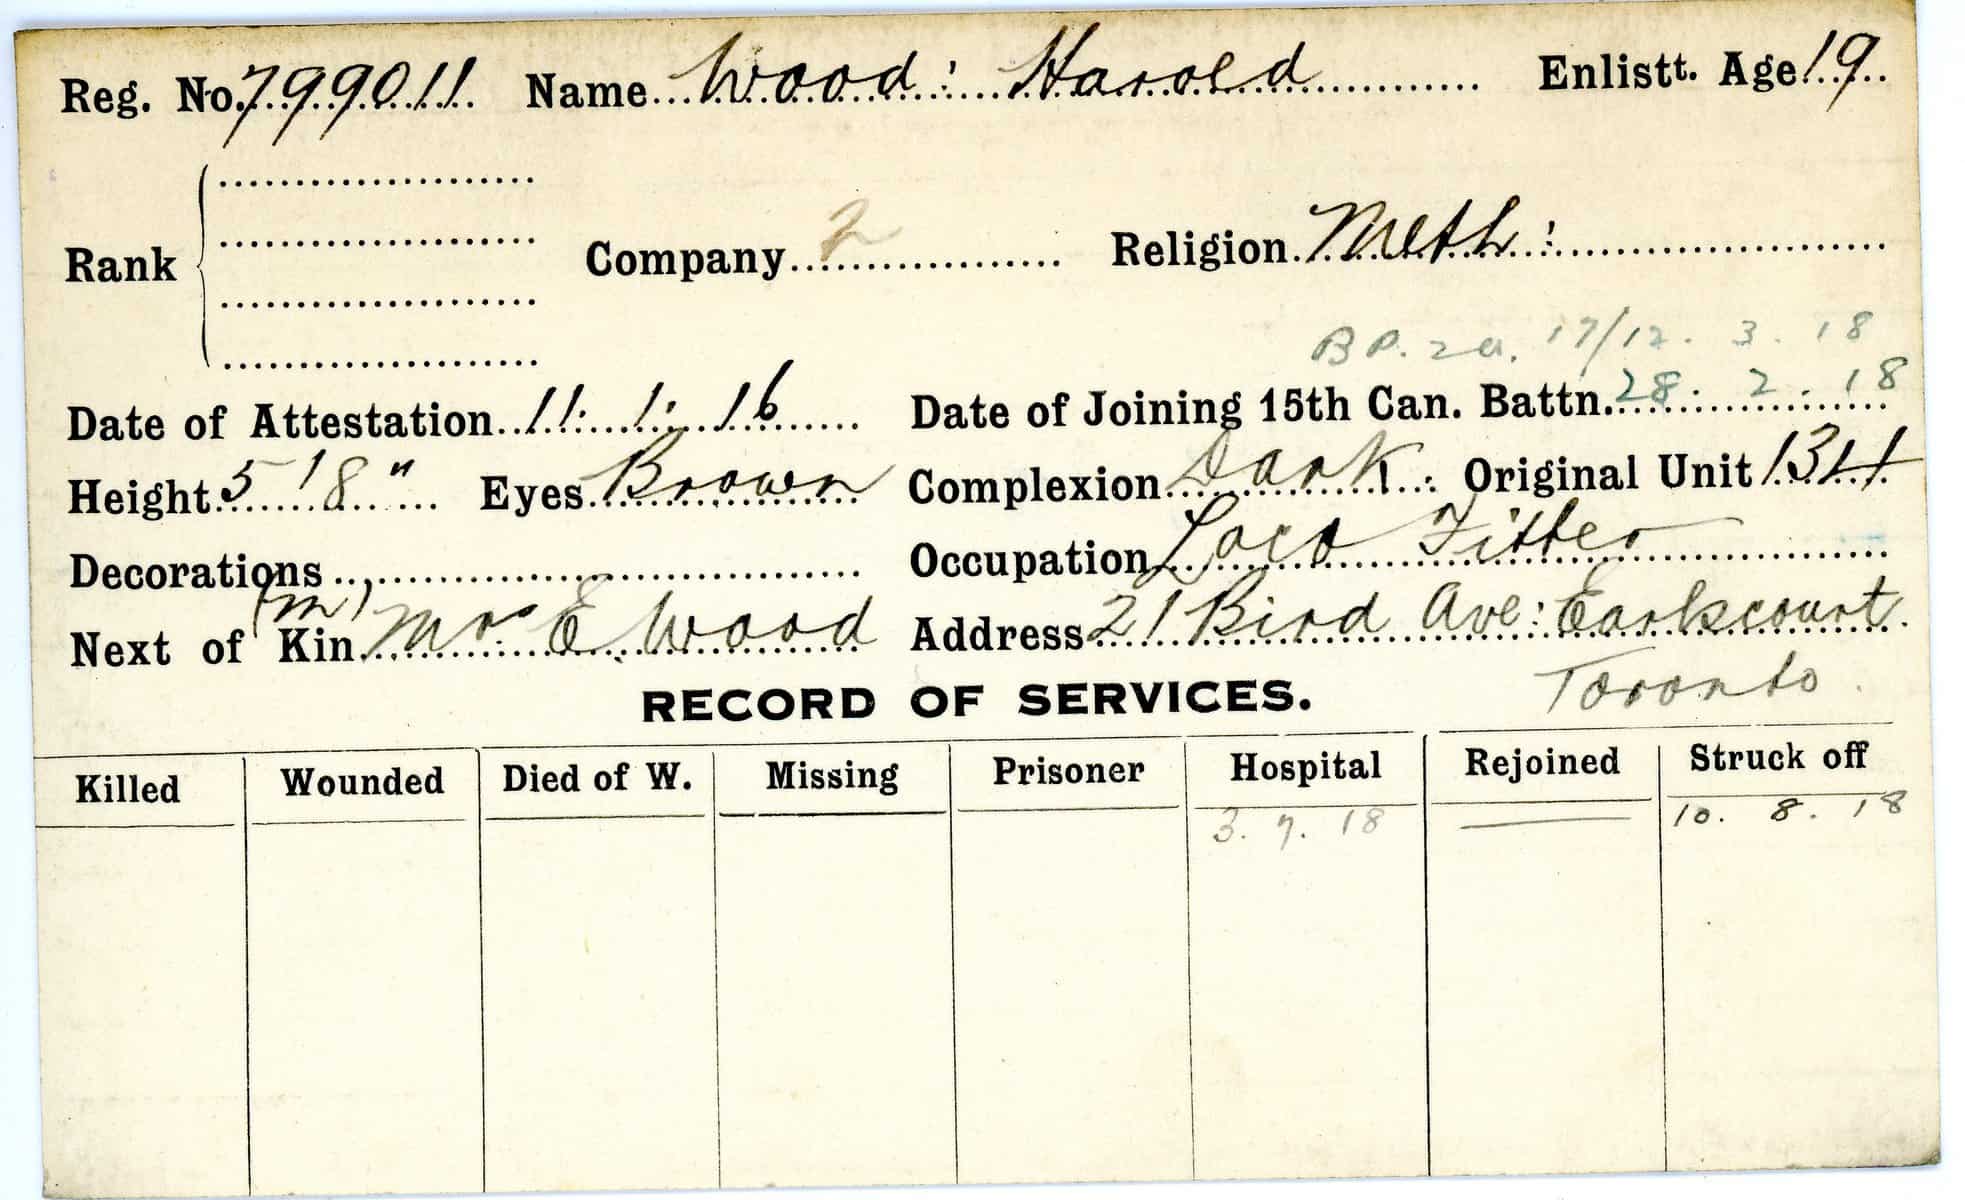 Reg. No. 799011 Name Wood: Harold Enlistt. Age 19
Rank Company 2 Religion Meth:
B P. 17/12. 3. 18
Date of Attestation 11. 1. 16 Date of Joining 15th Can. Battn. 28. 2. 18
Height 5' 8" Eyes Brown Complexion Dark. Original Unit 134
Decorations Occupation Loco Fitter
(m)
Next of Kin Mrs. E. Wood Address 21 Bird Ave: Earlscourt.
Toronto.
RECORD OF SERVICES.
Killed Wounded Died of W. Missing Prisoner Hospital Rejoined Struck off
3. 7. 18 10. 8. 18